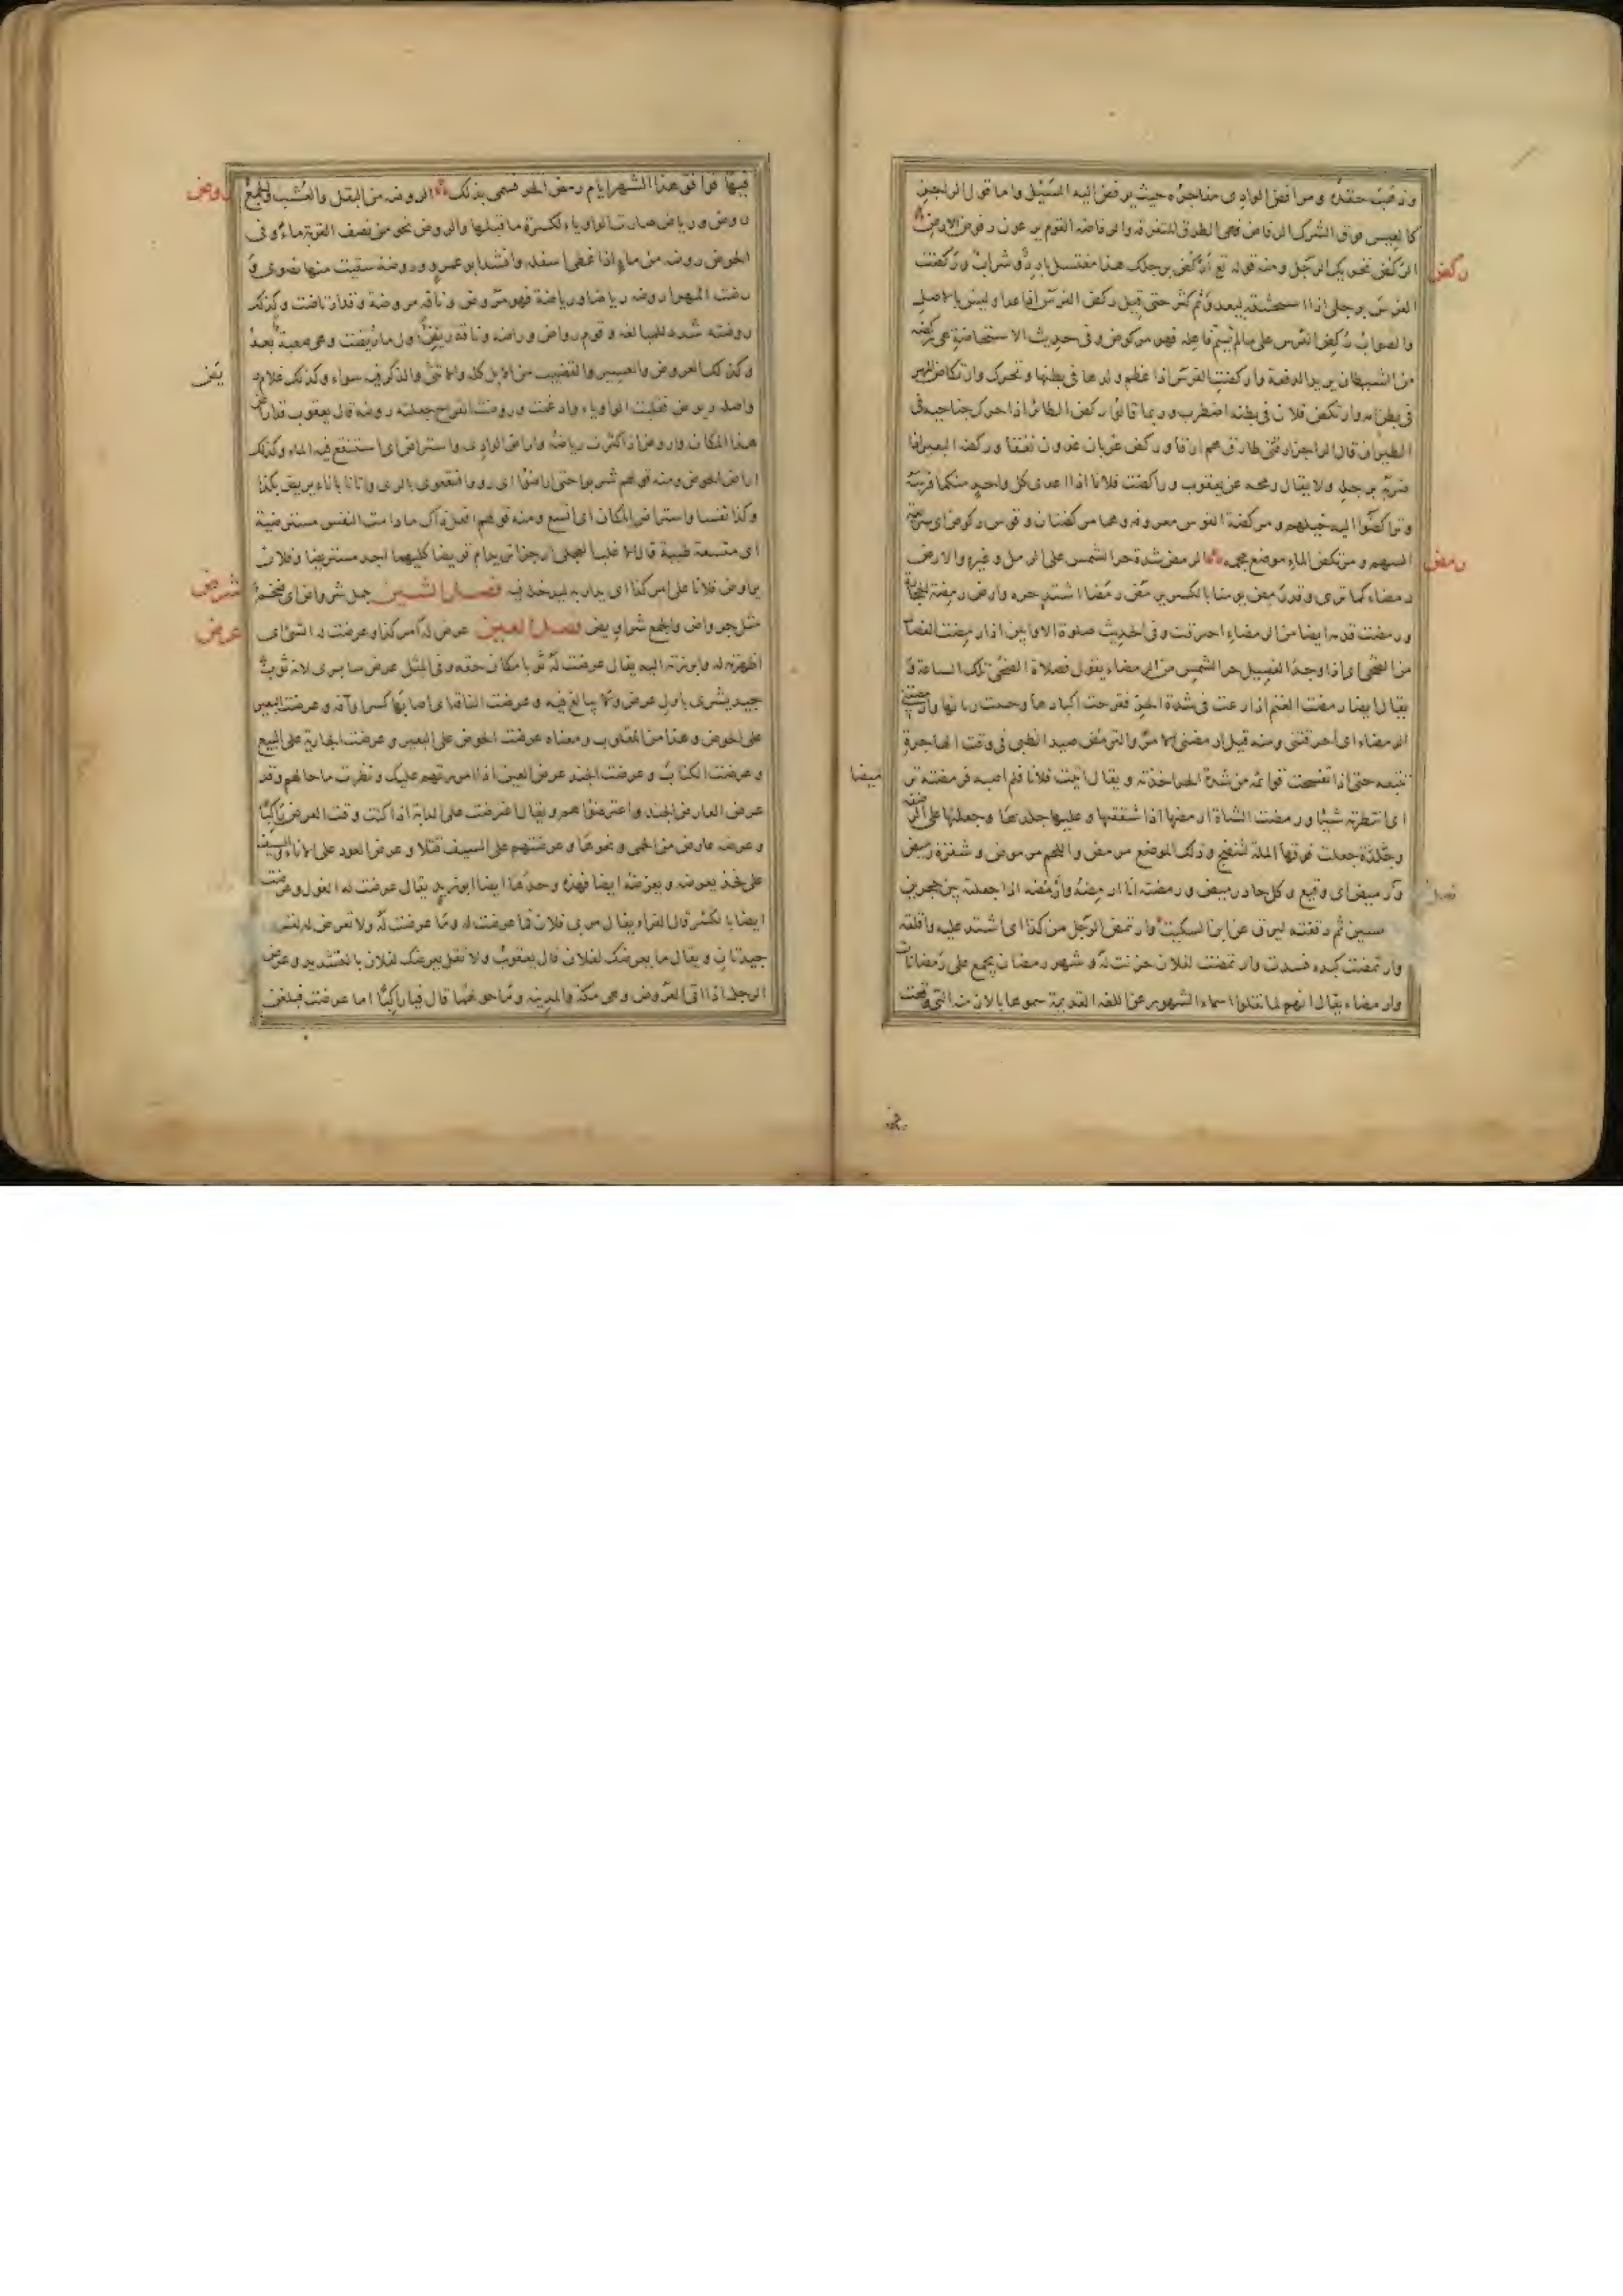 ورفضت حقده ومرافض الوادى مفاجره حيث يرفض اليه السيل واما قول الراجز
كالعيس فوق الشرك الرفاض فهى الطرق المتفرقة والرفاضة القوم يرعون رفوض الارض
ركض
الركض تحريك الرجل ومنه قوله تع اركض برجلك هذا مغتسل بارد وشراب وركضت
الفرس برجلى اذا استحثثته ليعدو ثم كثر حتى قيل ركض الفرس اذا عدا وليس بالاصل
والصواب ركض الفرس على ما لم يسم فاعله فهو مركوض وفى حديث الاستحاضة هى ركضة
من الشيطان يريد الدفعة واركضت الفرس اذا عظم ولدها فى بطنها وتحرك وارتكاض المهر
فى بطن امه وارتكض فلان فى بطنه اضطرب وربما قالوا ركض الطائر اذا حرك جناحيه فى
الطيران قال الراجز ارقنى طارق هم ارقا وركض غربان غدون نغقا وركضه البعير اذا
ضربه برجله ولا يقال رمحه عن يعقوب وراكضت فلانا اذا اعدى كل واحد منكما فرسه
وتراكضوا اليه خيلهم ومركضة القوس معروفة وهما مركضتان وقوس ركوض اى سريعة
رمض
السهم ومرتكض الماء موضع مجمه الرمض شدة حر الشمس على الرمل وغيره والارض
رمضاء كما ترى وقد رمض يومنا بالكسر يرمض رمضا اشتد حره وارض رمضة الحجارة
ورمضت قدمه ايضا من الرمضاء احترقت وفى الحديث صلوة الاوابين اذا رمضت الفصال
من الضحى اى اذا وجد الفصيل حر الشمس من الرمضاء يقول فصلاة الضحى تلك الساعة و
يقال ايضا رمضت الغنم اذا رعت فى شدة الحر فقرحت اكبادها وحبنت رئاتها وارمضتنى
الرمضاء اى احرقتنى ومنه قيل ارمضنى الامر والترمض صيد الظبى فى وقت الهاجرة
تتبعه حتى اذا تفسخت قوائمه من شدة الحر اخذته ويقال اتيت فلانا فلم اصبه فرمضته تر
ميضا
اى انتظرته شيئا ورمضت الشاة ارمضها اذا شققتها وعليها جلدها وجعلتها على الرضفة
وجعلت فوقها الملة لتنضج وذلك الموضع مرمض واللحم مرموض وشفرة رميض
ونصل رميض اى وقيع وكل حاد رميض ورمضته انا ارمضه وارمضه اذا جعلته بين حجرين
املسين ثم دققته ليرق عن ابن السكيت وارتمض الرجل من كذا اى اشتد عليه واقلقه
وارتمضت كبده فسدت وارتمضت لفلان حزنت له وشهر رمضان يجمع على رمضانات
وارمضاء يقال انهم لما نقلوا اسماء الشهور عن اللغة القديمة سموها بالازمنة التى وقعت
فيها فوافق هذا الشهر ايام رمض الحر فسمى بذلك الروضة من البقل والعشب والجمع
روض
روض ورياض صارت الواو ياء لكسرة ما قبلها والروض نحو من نصف القربة ماء وفى
الحوض روضة من ماء اذا غطى اسفله وانشد ابو عمرو وروضة سقيت منها نضوى و
رضت المهر اروضه رياضا ورياضة فهو مروض وناقة مروضة وقد ارتاضت وكذلك
روضته شدد للمبالغة وقوم رواض وراضة وناقة ريض اول ما ريضت وهى صعبة بعد
وكذلك العروض والعسير والقضيب من الابل كله والانثى والذكر فيه سواء وكذلك غلام
ريض
واصله ريوض فقلبت الواو ياء وادغمت وروضت القراح جعلته روضة قال يعقوب قد اراض
هذا المكان واروض اذا كثرت رياضه واراض الوادى واستراض اى استنقع فيه الماء وكذلك
اراض الحوض ومنه قولهم شربوا حتى اراضوا اى رووا فنقعوا بالرى واتانا باناء يريض كذا
وكذا نفسا واستراض المكان اى اتسع ومنه قولهم افعل ذاك ما دامت النفس مستريضة
اى متسعة طيبة قال الاغلب العجلى ارجزا تريد ام قريضا كليهما اجيد مستريضا وفلان
يراوض فلانا على امر كذا اى يداريه ليدخله فيه فصل الشين جمل شرواض اى ضخم
شرض
مثل جرواض والجمع شراويض فصل العين عرض له امر كذا وعرضت له الشئ اى
عرض
اظهرته له وابرزته اليه يقال عرضت له ثوبا مكان حقه وفى المثل عرض سابرى لانه ثوب
جيد يشترى باول عرض ولا يبالغ فيه وعرضت الناقة اى اصابها كسر او آفة وعرضت البعير
على الحوض وهذا من المقلوب ومعناه عرضت الحوض على البعير وعرضت الجارية على البيع
وعرضت الكتاب وعرضت الجند عرض العين اذا امررتهم عليك ونظرت ما حالهم وقد
عرض العارض الجند واعترضوا هم ويقال اعترضت على الدابة اذا كنت وقت العرض راكبا
وعرضه عارض من الحمى ونحوها وعرضتهم على السيف قتلا وعرض العود على الاناء والسيف
على فخذه يعرضه ويعرضه ايضا فهذه وحدها ايضا ابو زيد يقال عرضت له الغول وعرضت
ايضا بالكسر قال الفراء يقال مر بى فلان فما عرضت له وما عرضت له ولا تعرض له لغتان
جيدتان ويقال ما يعرضك لفلان قال يعقوب ولا تقل يعرضك لفلان بالتشديد وعرض
الرجل اذا اتى العروض وهى مكة والمدينة وما حولهما قال فيا راكبا اما عرضت فبلغن